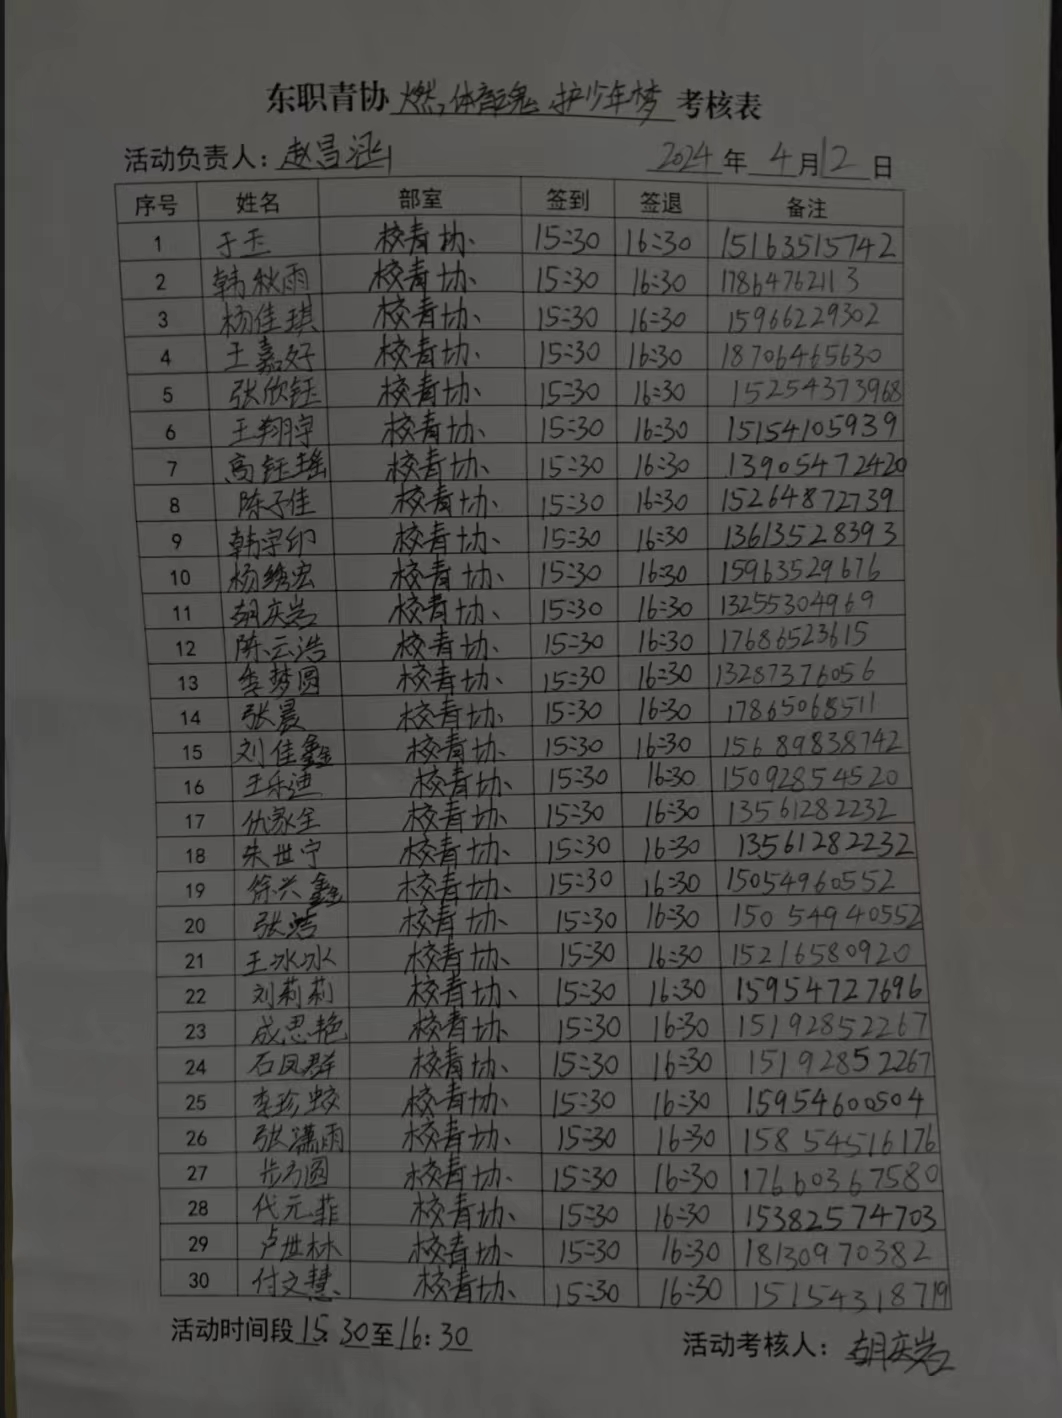 东职青协 燃体育魂 护少年梦 考核表
活动负责人：赵昌涵 2024年4月12日
序号 姓名 部室 签到 签退 备注
1 于玉 校青协 15:30 16:30 15163515742
2 韩秋雨 校青协 15:30 16:30 17864762113
3 杨佳琪 校青协 15:30 16:30 15966229302
4 王嘉好 校青协 15:30 16:30 18706465630
5 张欣钰 校青协 15:30 16:30 15254373968
6 王翔宇 校青协 15:30 16:30 15154105939
7 高钰瑶 校青协 15:30 16:30 13905472420
8 陈子佳 校青协 15:30 16:30 15264872739
9 韩宇印 校青协 15:30 16:30 13613528393
10 杨绣宏 校青协 15:30 16:30 15963529676
11 胡庆岩 校青协 15:30 16:30 13255304969
12 陈云浩 校青协 15:30 16:30 17686523615
13 季梦圆 校青协 15:30 16:30 13287376056
14 张晨 校青协 15:30 16:30 17865068511
15 刘佳鑫 校青协 15:30 16:30 15689838742
16 王乐迪 校青协 15:30 16:30 15092854520
17 仇家全 校青协 15:30 16:30 13561282232
18 朱世宁 校青协 15:30 16:30 13561282232
19 徐兴鑫 校青协 15:30 16:30 15054960552
20 张浩 校青协 15:30 16:30 15054940552
21 王冰冰 校青协 15:30 16:30 15216580920
22 刘莉莉 校青协 15:30 16:30 15954727696
23 成思艳 校青协 15:30 16:30 15192852267
24 石凤群 校青协 15:30 16:30 15192852267
25 李珍蛟 校青协 15:30 16:30 15954600504
26 张潇雨 校青协 15:30 16:30 15854516176
27 步方圆 校青协 15:30 16:30 17660367580
28 代元菲 校青协 15:30 16:30 15382574703
29 卢世林 校青协 15:30 16:30 18130970382
30 付文慧 校青协 15:30 16:30 15154318719
活动时间段 15:30至16:30 活动考核人：胡庆岩